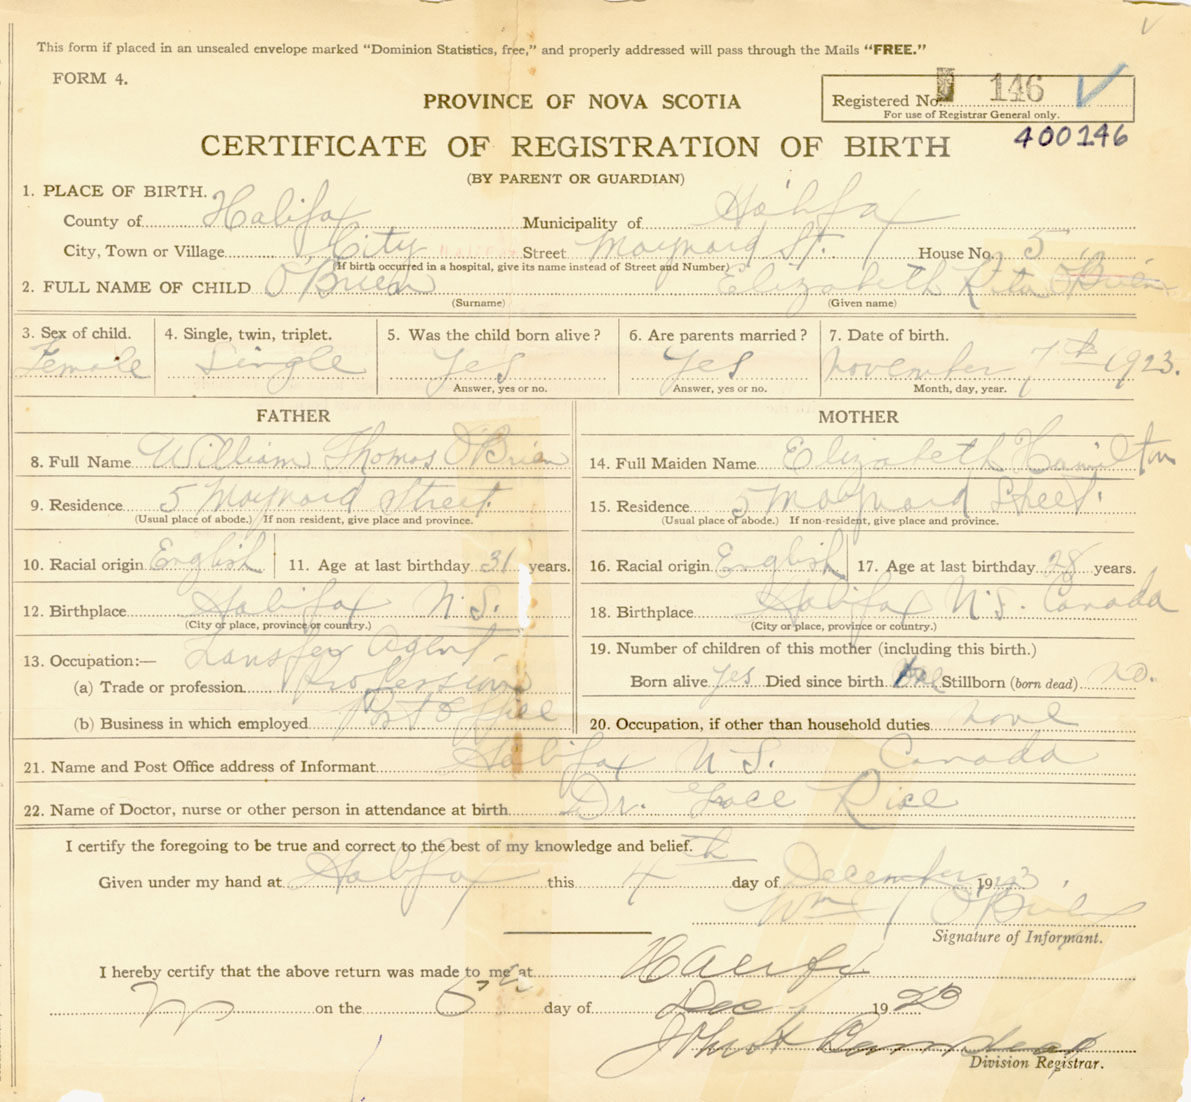 This form if placed in an unsealed envelope marked "Dominion Statistics, free," and properly addressed will pass through the Mails "FREE."
FORM 4.
Registered No. 146
For use of Registrar General only.
400146
PROVINCE OF NOVA SCOTIA
CERTIFICATE OF REGISTRATION OF BIRTH
(BY PARENT OR GUARDIAN)
1. PLACE OF BIRTH.
County of Halifax Municipality of Halifax
City, Town or Village City Street Maynard St. House No. 5
(If birth occurred in a hospital, give its name instead of Street and Number)
2. FULL NAME OF CHILD O'Brien Elizabeth Rita O'Brien
(Surname) (Given name)
3. Sex of child. 4. Single, twin, triplet. 5. Was the child born alive? 6. Are parents married? 7. Date of birth.
Female Single Yes Yes November 7th 1923.
Answer, yes or no. Answer, yes or no. Month, day, year.
FATHER MOTHER
8. Full Name William Thomas O'Brien 14. Full Maiden Name Elizabeth Hamilton
9. Residence 5 Maynard Street. 15. Residence 5 Maynard Street.
(Usual place of abode.) If non resident, give place and province. (Usual place of abode.) If non-resident, give place and province.
10. Racial origin English 11. Age at last birthday 31 years. 16. Racial origin English 17. Age at last birthday 28 years.
12. Birthplace Halifax N.S. 18. Birthplace Halifax N.S. Canada
(City or place, province or country.) (City or place, province or country.)
13. Occupation:— Transfer Agent 19. Number of children of this mother (including this birth.)
(a) Trade or profession Profession Born alive yes Died since birth Stillborn (born dead) no.
(b) Business in which employed Post Office 20. Occupation, if other than household duties none
21. Name and Post Office address of Informant Halifax N.S. Canada
22. Name of Doctor, nurse or other person in attendance at birth Dr. Grace Rice
I certify the foregoing to be true and correct to the best of my knowledge and belief.
Given under my hand at Halifax this 4th day of December 1923.
Wm T O'Brien
Signature of Informant.
I hereby certify that the above return was made to me at Halifax
on the 5th day of Dec 1923
John H
Division Registrar.